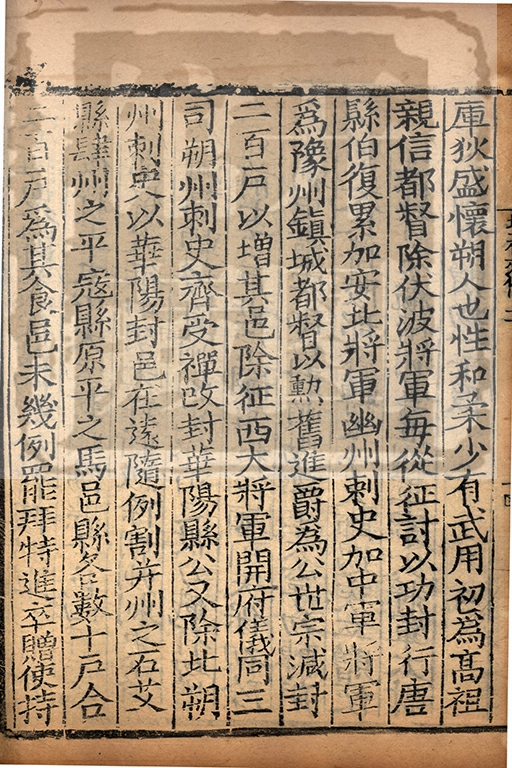 厙狄盛懷朔人也性和柔少有武用初為高祖
親信都督除伏波將軍每從征討以功封行唐
縣伯復累加安北將軍幽州刺史加中軍將軍
為豫州鎮城都督以勲舊進爵為公世宗減封
二百戶以增其邑除征西大將軍開府儀同三
司朔州刺史齊受禪改封華陽縣公又除北朔
州刺史以華陽封邑在遠隨例割并州之石艾
縣肆州之平寇縣原平之馬邑縣各數十戶合
二百戶為其食邑未幾例罷拜特進卒贈使持